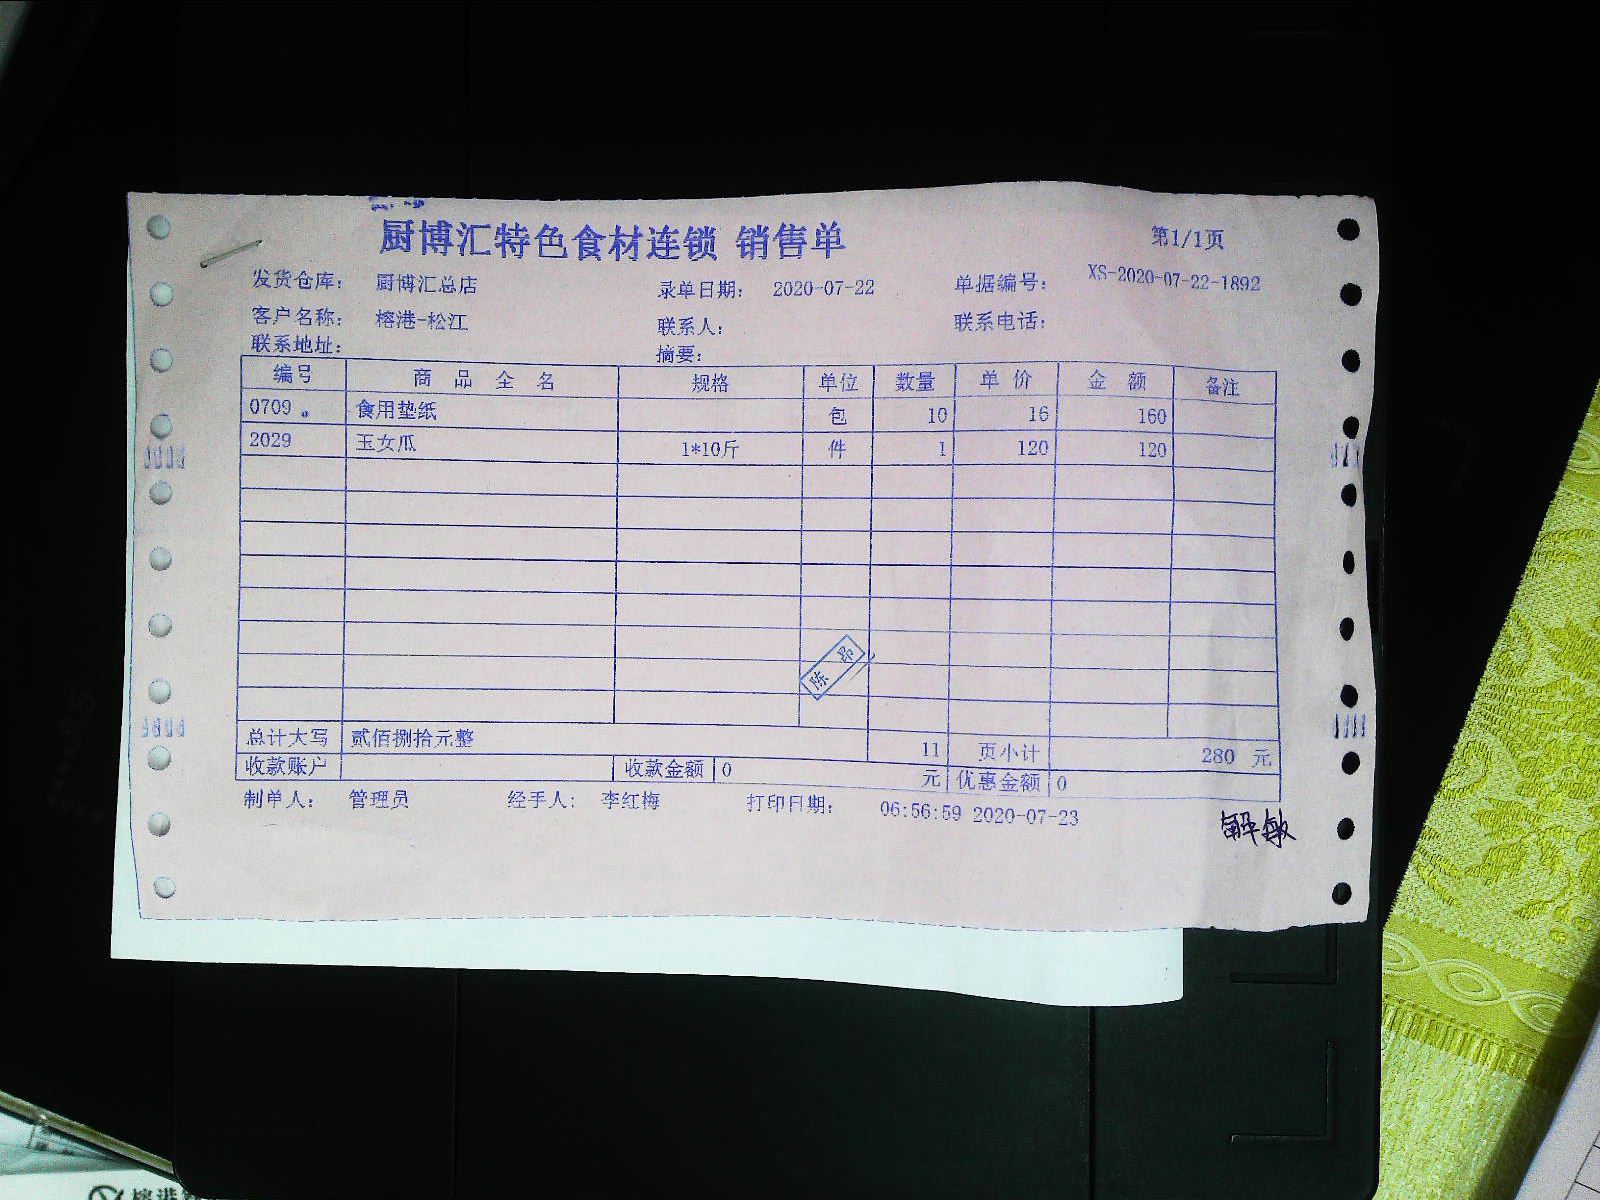 厨博汇特色食材连锁 销售单
第1/1页
发货仓库： 厨博汇总店 录单日期： 2020-07-22 单据编号： XS-2020-07-22-1892
客户名称： 榕港-松江 联系人： 联系电话：
联系地址： 摘要：
编号 商品全名 规格 单位 数量 单价 金额 备注
0709 食用垫纸 包 10 16 160
2029 玉女瓜 1*10斤 件 1 120 120
陈昂
总计大写 贰佰捌拾元整 11 页小计 280 元
收款账户 收款金额 0 元 优惠金额 0
制单人： 管理员 经手人： 李红梅 打印日期： 06:56:59 2020-07-23
解敏
榕港